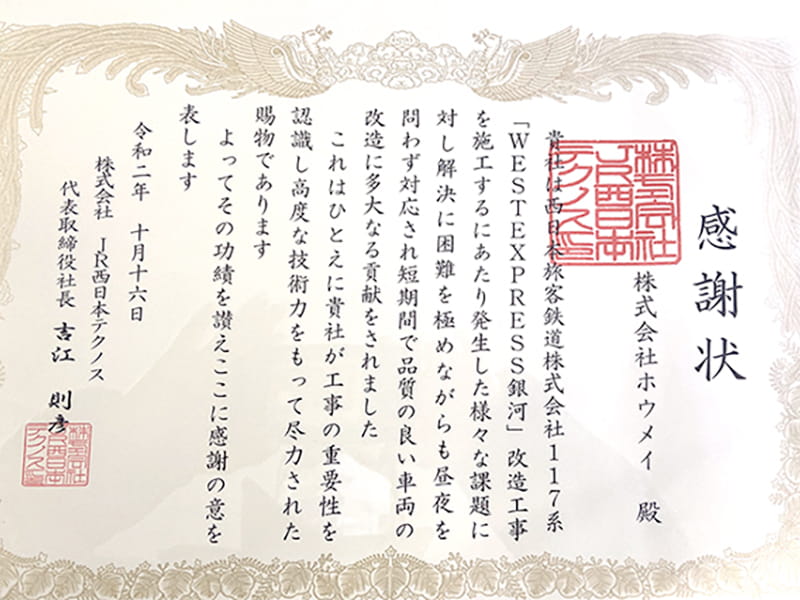 感謝状
株式会社ホウメイ 殿
貴社は西日本旅客鉄道株式会社117系
「WESTEXPRESS銀河」改造工事
を施工するにあたり発生した様々な課題に
対し解決に困難を極めながらも昼夜を
問わず対応され短期間で品質の良い車両の
改造に多大なる貢献をされました
これはひとえに貴社が工事の重要性を
認識し高度な技術力をもって尽力された
賜物であります
よってその功績を讃えここに感謝の意を
表します
令和二年 十月十六日
株式会社 JR西日本テクノス
代表取締役社長 吉江 則彦
株式会社
JR西日本
テクノス印
株式会社
JR西日本
テクノス印